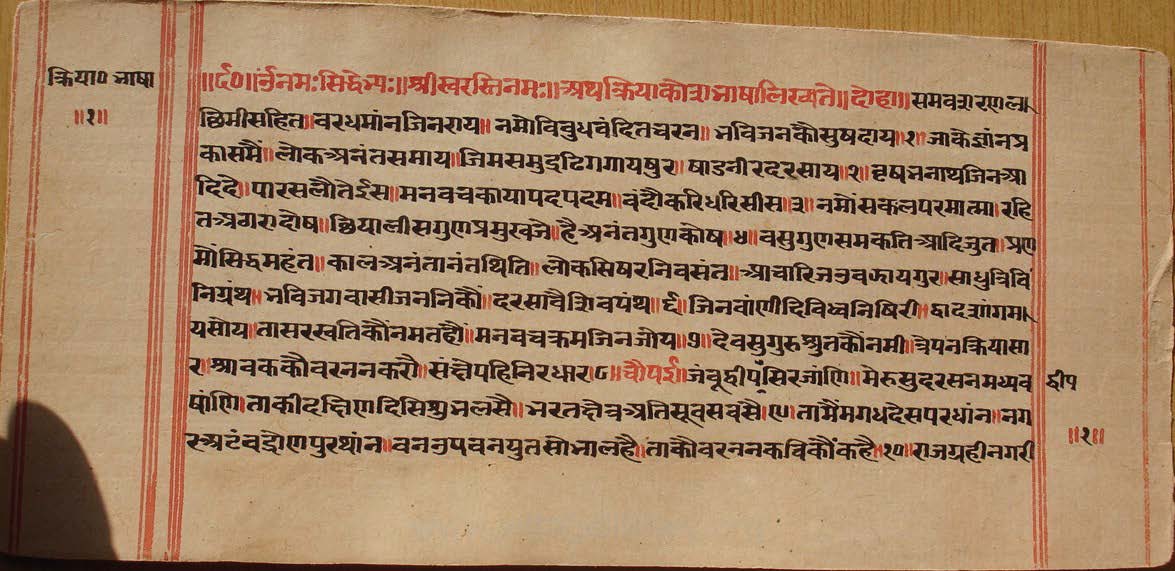 क्रिया० भाषा
॥१॥
॥ र्द०॥ र्उनमः सिद्धेभ्यः॥ श्रीस्वरस्तिनमः॥ अथ क्रियाकौश भाषा लिख्यते॥ दोहा॥ समवशरण ल
छिमी सहित॥ वरधमांन जिनराय॥ नमो विबुध वंदित चरन॥ भविजनकौं सुषदाय॥१॥ जाकै ज्ञांन प्र
कासमैं॥ लोक अनंत समाय॥ जिम समुद्र ढिग गायषुर॥ षाड नीर दरसाय॥२॥ वृषभनाथ जिन आ
दि दे॥ पारस लौ तेईस॥ मन वच काया पद पदम॥ वंदौ करि धरि सीस॥३॥ नमौं सकल परमात्मा॥ रहि
त अठारा दोष॥ छियालीस गुण प्रमुख जे॥ है अनंत गुण कोष॥४॥ वसु गुण समकति आदि जुत॥ प्रण
मौं सिद्ध महंत॥ काल अनंतानंत थिति॥ लोक सिषर निवसंत॥ आचारिज उवझाय गुर॥ साधु त्रिवि
निग्रंथ॥ भवि जगवासी जननिकौं॥ दरसावै शिव पंथ॥६॥ जिनवांणी दिवि ध्वनि षिरी॥ द्वादशांगमा
य सोय॥ ता सरस्वतिकौं नमत हौं॥ मन वच क्रम जिन जोय॥७॥ देव सुगुरु श्रुतकौं नमी॥ त्रेपन क्रिया सा
र॥ श्रावककौ वरनन करौ॥ संक्षेपहि निरधार॥८॥ चौपई॥ जंबूद्वीप सिर जांणि॥ मेरु सुदरसन मध्य व
षांणि॥ ताकी दक्षिण दिसि शुभ लसै॥ भरत क्षेत्र अति सूवस वसै॥९॥ तामैं मगध देस परधांन॥ नग
र अटंव द्रोण पुर थांन॥ वन उपवन युत सोभा लहै॥ ताकौ वरनन कवि कौं कहै॥१०॥ राजग्रही नगरी
द्वीप
॥१॥